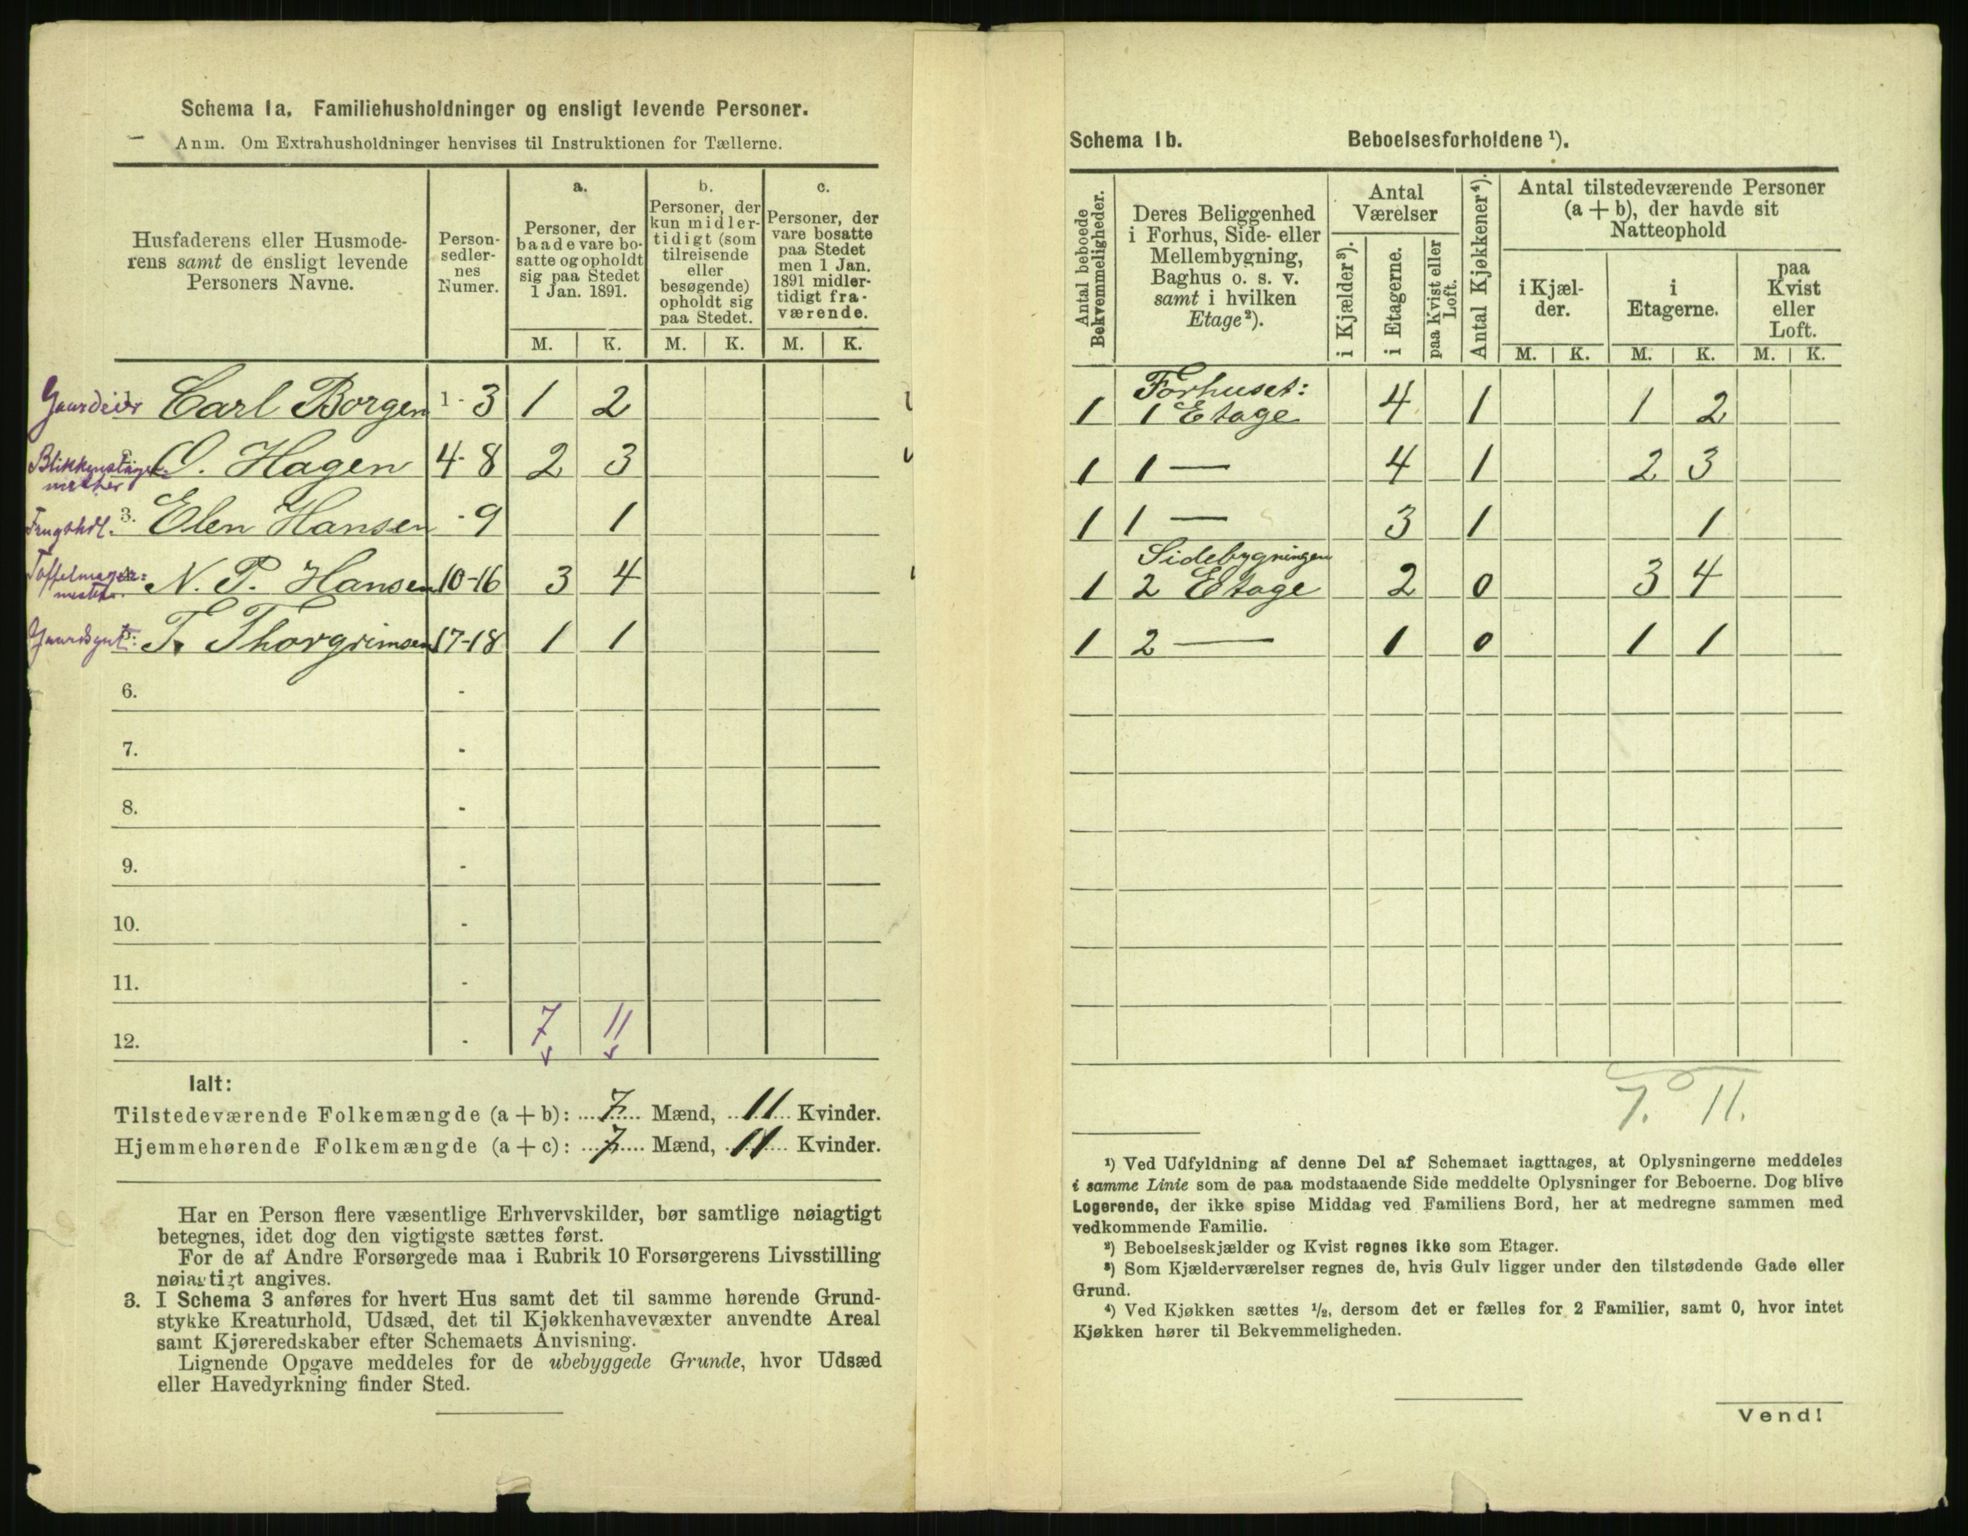 Schema 1a. Familiehusholdninger og ensligt levende Personer.
Anm. Om Extrahusholdninger henvises til Instruktionen for Tællerne.
Husfaderens eller Husmode-
rens samt de ensligt levende
Personers Navne.
Person-
sedler-
nes
Numer.
a.
Personer, der
baade vare bo-
satte og opholdt
sig paa Stedet
1 Jan. 1891.
b.
Personer, der
kun midler-
tidigt (som
tilreisende
eller
besøgende)
opholdt sig
paa Stedet.
c.
Personer, der
vare bosatte
paa Stedet
men 1 Jan.
1891 midler-
tidigt fra-
værende.
M. K. M. K. M. K.
Gaardeier Carl Borgen 1-3 1 2
Blikkenslager- O. Hagen 4-8 2 3
mester
3. Elen Hansen -9 1
N. P. Hansen 10-16 3 4
T. Thorgrimsen 17-18 1 1
6. -
7. -
8. -
9. -
10. -
11. -
12. - 7 11
Ialt:
Tilstedeværende Folkemængde (a + b): 7 Mænd, 11 Kvinder.
Hjemmehørende Folkemængde (a + c): 7 Mænd, 11 Kvinder.
Har en Person flere væsentlige Erhvervskilder, bør samtlige nøiagtigt
betegnes, idet dog den vigtigste sættes først.
For de af Andre Forsørgede maa i Rubrik 10 Forsørgerens Livsstilling
nøiagtigt angives.
3. I Schema 3 anføres for hvert Hus samt det til samme hørende Grund-
stykke Kreaturhold, Udsæd, det til Kjøkkenhavevæxter anvendte Areal
samt Kjøreredskaber efter Schemaets Anvisning.
Lignende Opgave meddeles for de ubebyggede Grunde, hvor Udsæd
eller Havedyrkning finder Sted.
Schema 1b. Beboelsesforholdene ¹).
Antal beboede
Bekvemmeligheder.
Deres Beliggenhed
i Forhus, Side- eller
Mellembygning,
Baghus o. s. v.
samt i hvilken
Etage²).
Antal
Værelser
i Kjælder³).
i Etagerne.
paa Kvist eller
Loft.
Antal Kjøkkener⁴).
Antal tilstedeværende Personer
(a + b), der havde sit
Natteophold
i Kjæl-
der.
i
Etagerne.
paa
Kvist
eller
Loft.
M. K. M. K. M. K.
Forhuset:
1 1 Etage 4 1 1 2
1 1 — 4 1 2 3
1 1 — 3 1 1
Sidebygningen
1 2 Etage 2 0 3 4
1 2 — 1 0 1 1
7. 11.
¹) Ved Udfyldning af denne Del af Schemaet iagttages, at Oplysningerne meddeles
i samme Linie som de paa modstaaende Side meddelte Oplysninger for Beboerne. Dog blive
Logerende, der ikke spise Middag ved Familiens Bord, her at medregne sammen med
vedkommende Familie.
²) Beboelseskjælder og Kvist regnes ikke som Etager.
³) Som Kjælderværelser regnes de, hvis Gulv ligger under den tilstødende Gade eller
Grund.
⁴) Ved Kjøkken sættes ½, dersom det er fælles for 2 Familier, samt 0, hvor intet
Kjøkken hører til Bekvemmeligheden.
Vend!